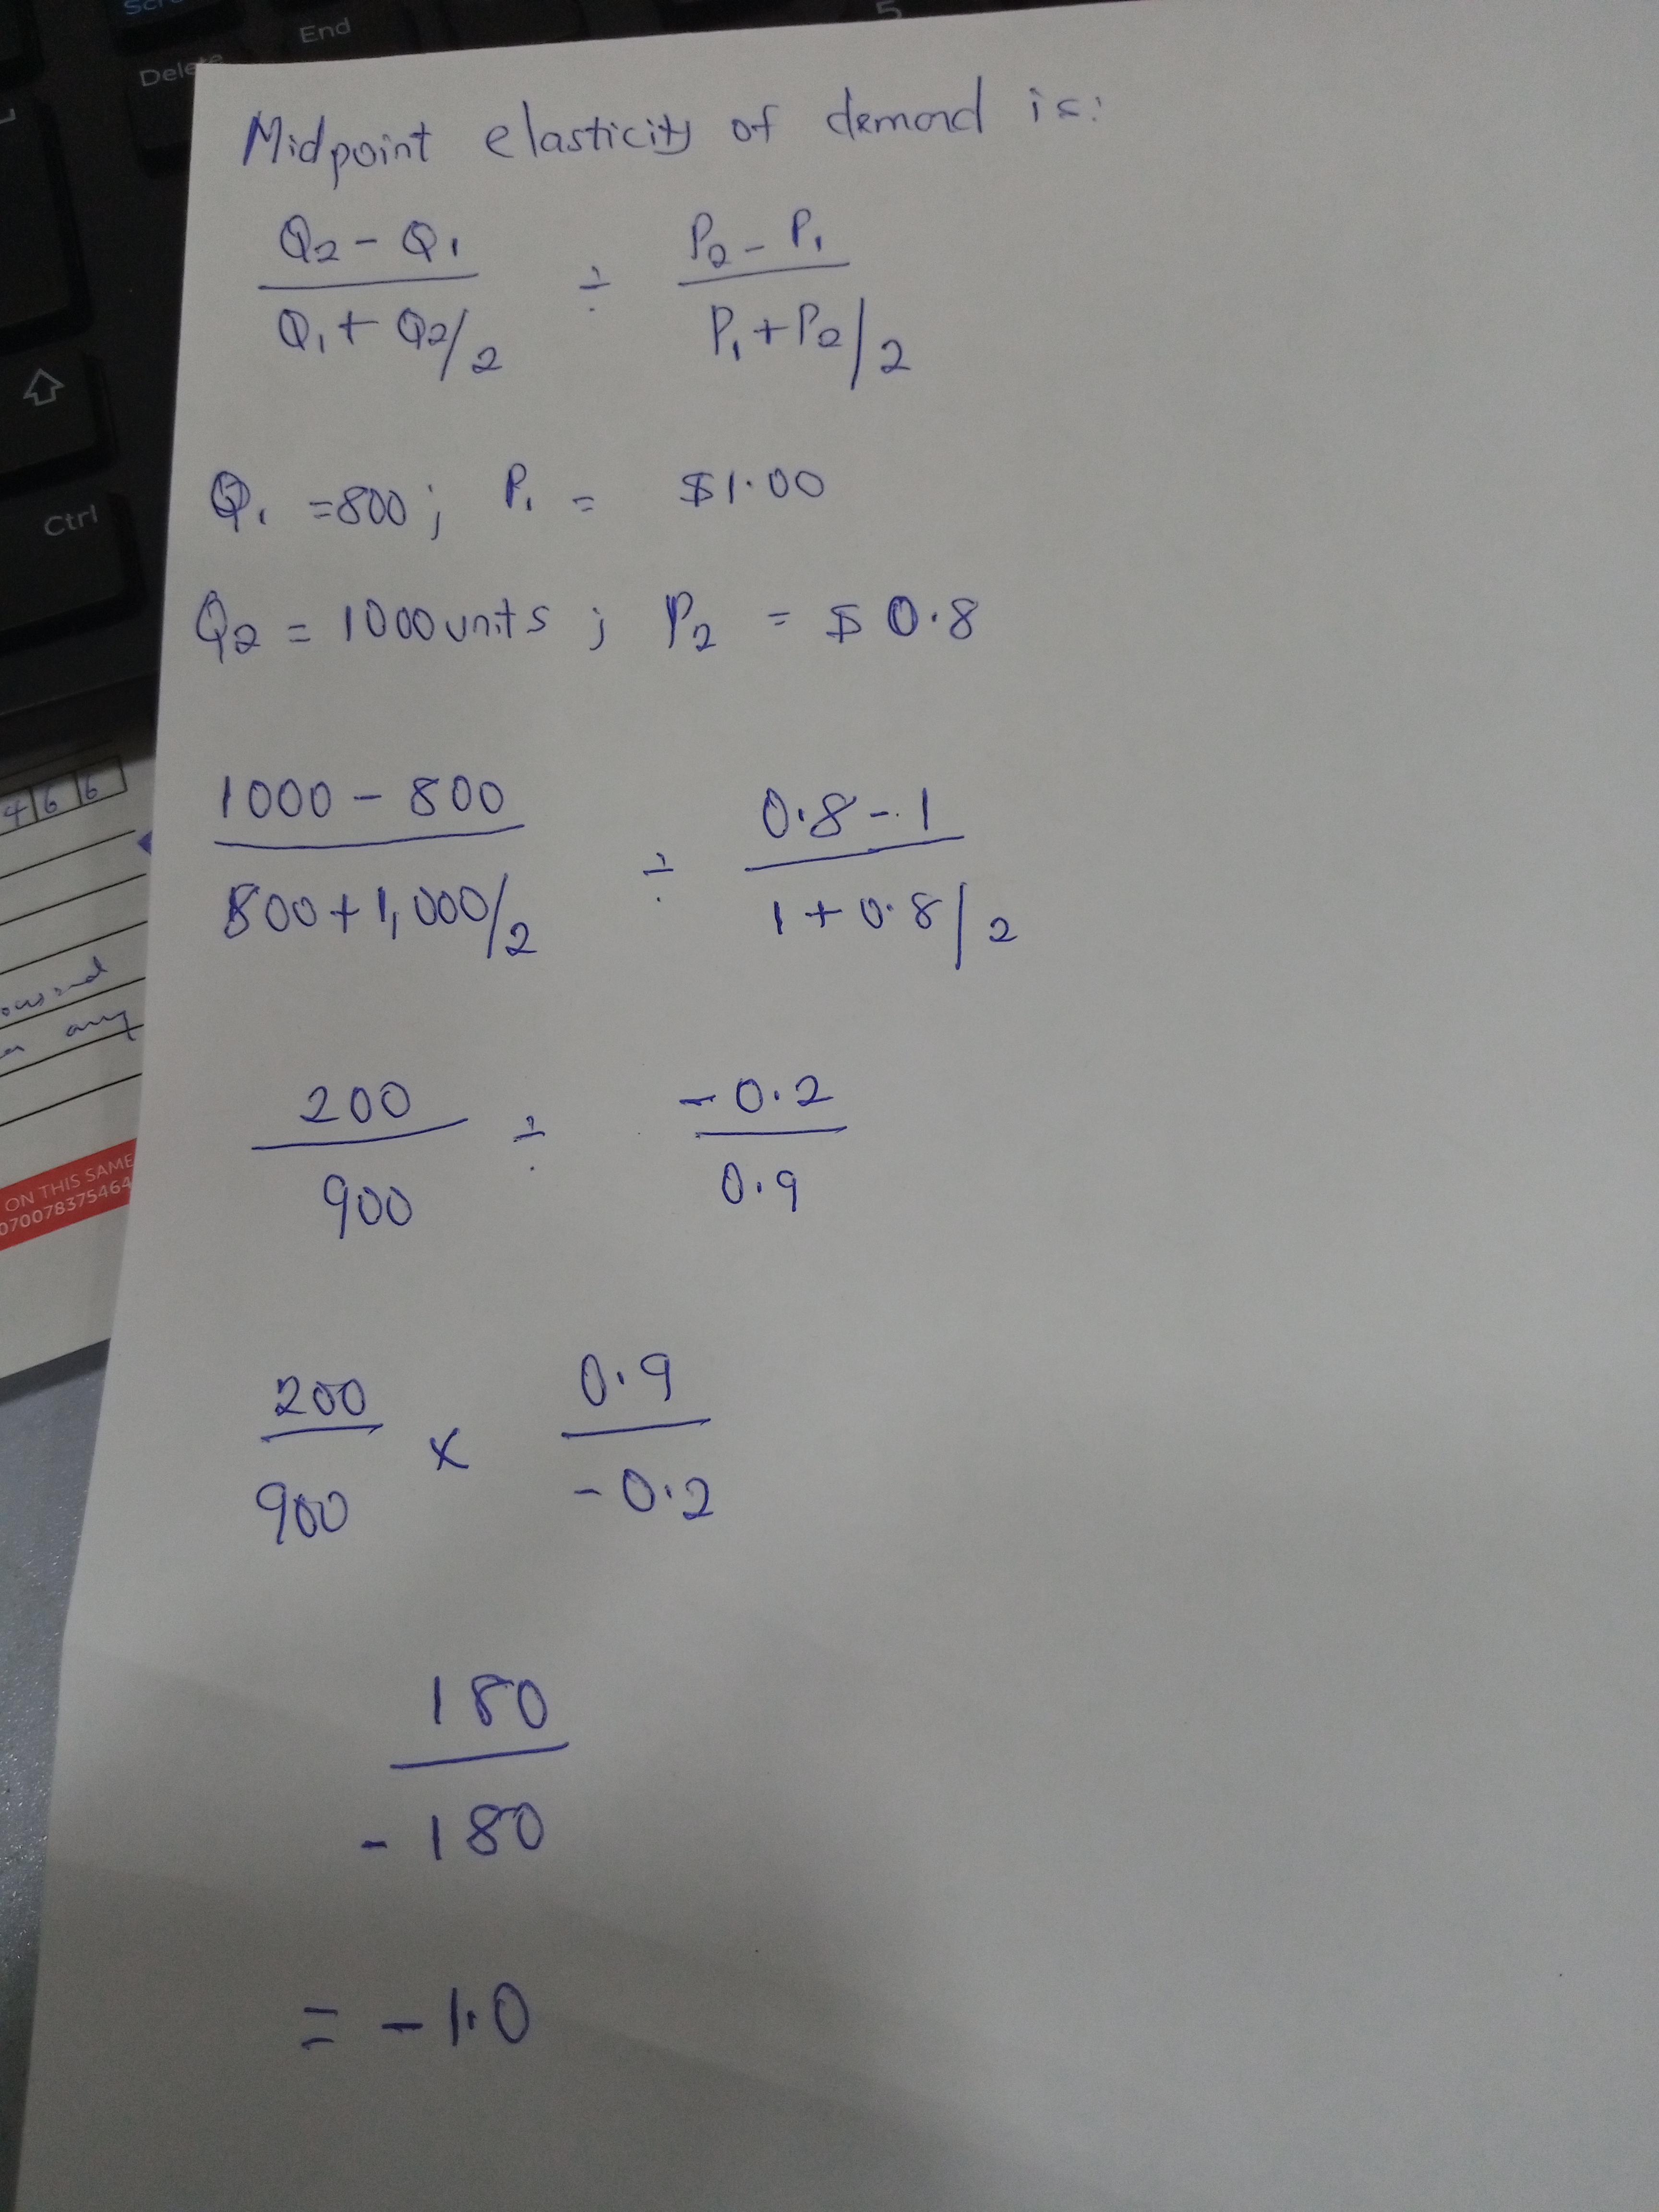 End
Delete
5
Ctrl
Midpoint elasticity of demand is:
Q2 - Q1 ÷ P2 - P1
Q1 + Q2/2 P1 + P2/2
Q1 = 800 ; P1 = $1.00
Q2 = 1000 units ; P2 = $ 0.8
1000 - 800 ÷ 0.8 - 1
800 + 1,000/2 1 + 0.8/2
200 ÷ - 0.2
900 0.9
200 x 0.9
900 - 0.2
180
- 180
= - 1.0
4 6 6
any
ON THIS SAME
070078375464